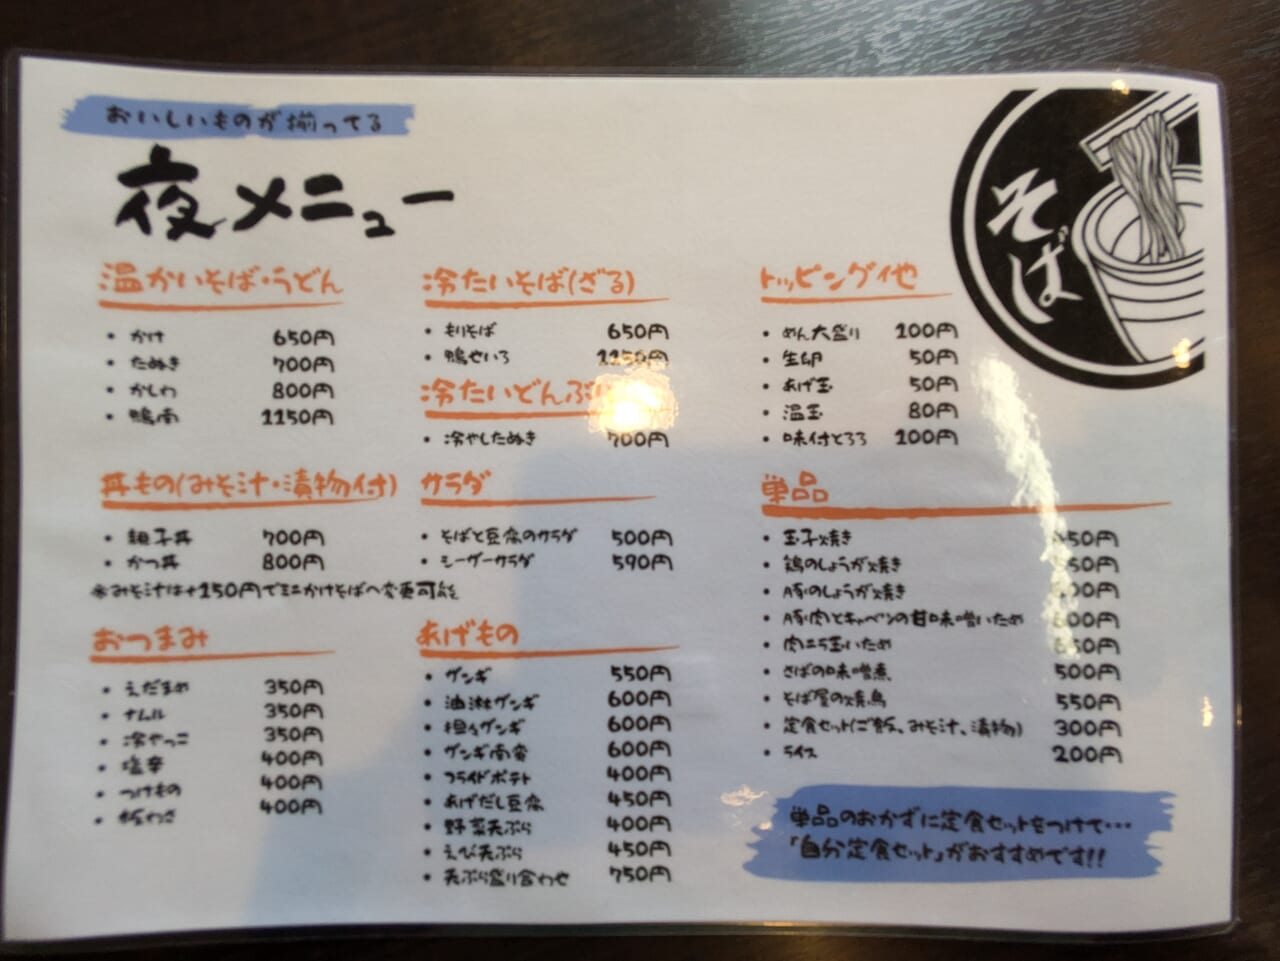 おいしいものが揃ってる
夜メニュー
そば
温かいそば・うどん
・かけ 650円
・たぬき 700円
・かしわ 800円
・鴨南 1150円
冷たいそば(ざる)
・もりそば 650円
・鴨せいろ 1150円
冷たいどんぶり
・冷やしたぬき 700円
トッピング他
・めん大盛り 100円
・生卵 50円
・あげ玉 50円
・温玉 80円
・味付とろろ 100円
丼もの(みそ汁・漬物付)
・親子丼 700円
・かつ丼 800円
※みそ汁は+150円でミニかけそばへ変更可能
サラダ
・そばと豆腐のサラダ 500円
・シーザーサラダ 590円
単品
・玉子焼き 50円
・鶏のしょうが焼き 50円
・豚のしょうが焼き 00円
・豚肉とキャベツの甘味噌いため 600円
・肉ニラ玉いため 650円
・さばの味噌煮 500円
・そば屋の焼鳥 550円
・定食セット(ご飯、みそ汁、漬物) 300円
・ライス 200円
おつまみ
・えだまめ 350円
・ナムル 350円
・冷やっこ 350円
・塩辛 400円
・つけもの 400円
・板わさ 400円
あげもの
・ザンギ 550円
・油淋ザンギ 600円
・担々ザンギ 600円
・ザンギ南蛮 600円
・フライドポテト 400円
・あげだし豆腐 450円
・野菜天ぷら 400円
・えび天ぷら 450円
・天ぷら盛り合わせ 750円
単品のおかずに定食セットをつけて・・・
「自分定食セット」がおすすめです!!